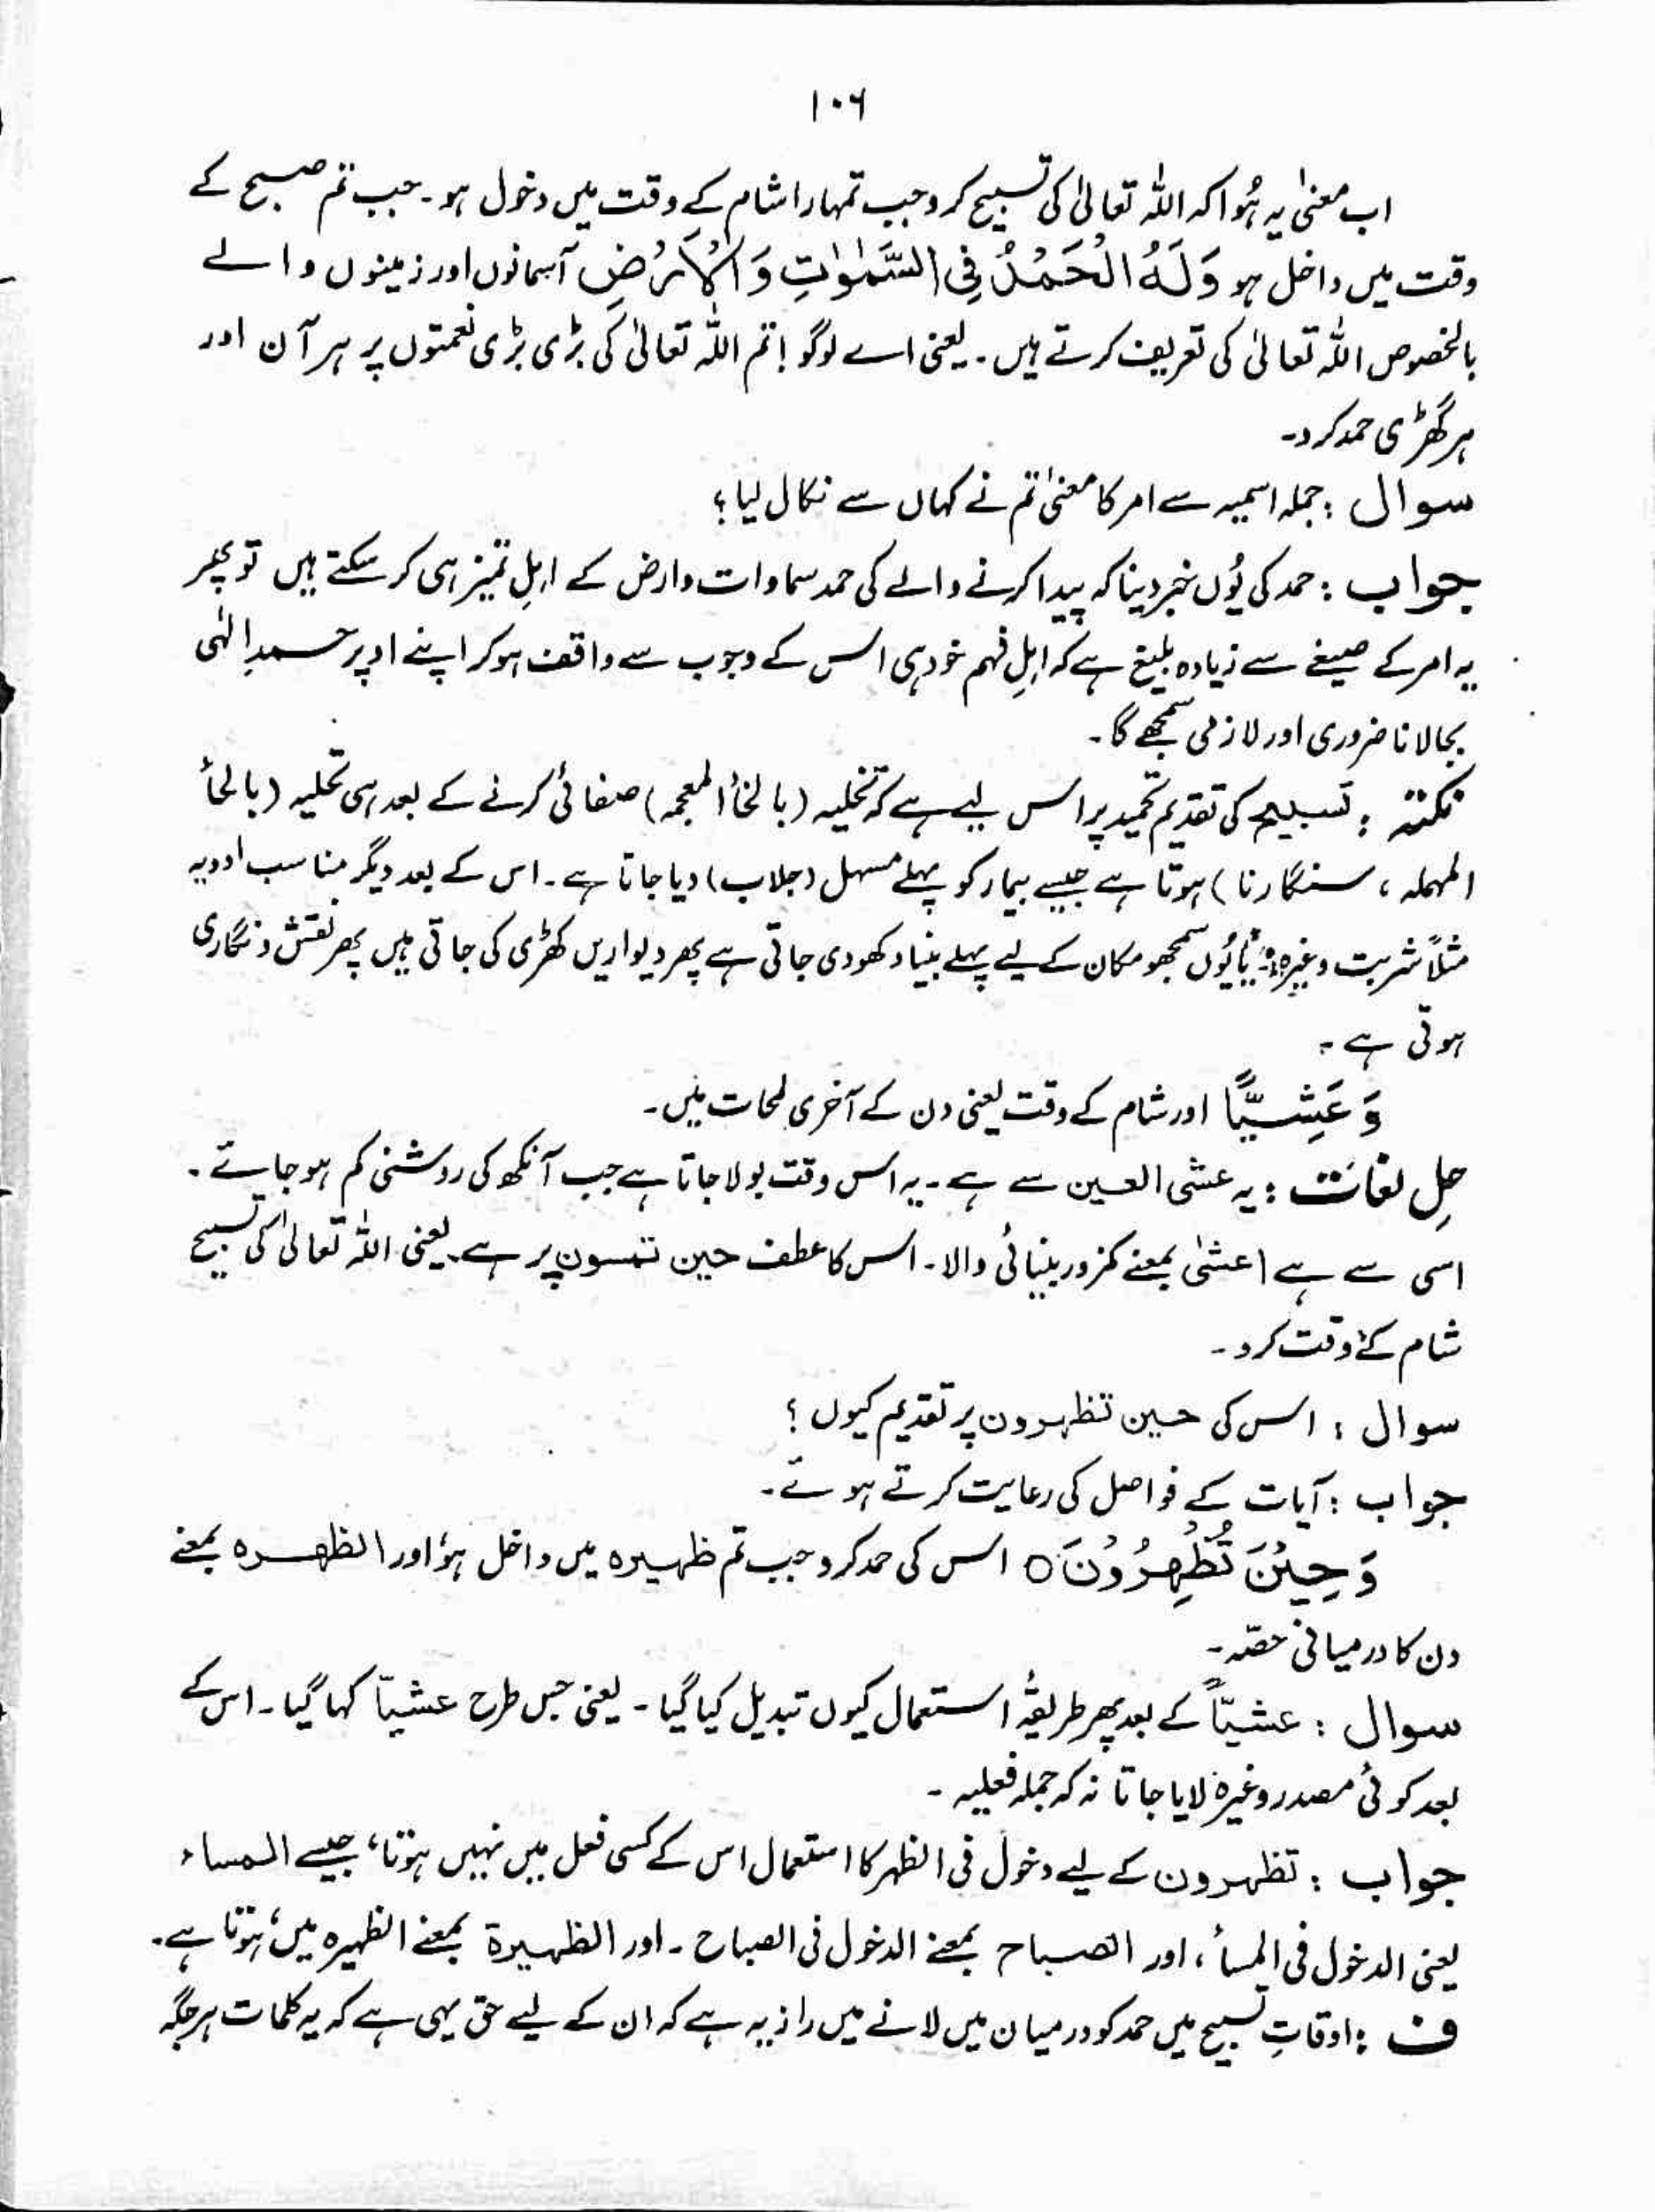 ۱۰۶
اب معنیٰ یہ ہُوا کہ اللہ تعالیٰ کی تسبیح کرو جب تمہارا شام کے وقت میں دخول ہو۔ جب تم صبح کے
وقت میں داخل ہو وَلَهُ الْحَمْدُ فِي السَّمٰوٰتِ وَالْاَرْضِ آسمانوں اور زمینوں والے
بالخصوص اللہ تعالیٰ کی تعریف کرتے ہیں۔ یعنی اے لوگو! تم اللہ تعالیٰ کی بڑی بڑی نعمتوں پر ہر آن اور
ہر گھڑی حمد کرو۔
سوال : جملہ اسمیہ سے امر کا معنیٰ تم نے کہاں سے نکال لیا؟
جواب : حمد کی یُوں خبر دینا کہ پیدا کرنے والے کی حمد سماوات و ارض کے اہلِ تمیز ہی کر سکتے ہیں تو پھر
یہ امر کے صیغے سے زیادہ بلیغ ہے کہ اہلِ فہم خود ہی اس کے وجوب سے واقف ہو کر اپنے اوپر حمدِ الٰہی
بجا لانا ضروری اور لازمی سمجھے گا۔
نکتہ : تسبیح کی تقدیم تحمید پر اس لیے ہے کہ تخلیہ (بالخأ المعجمہ) صفائی کرنے کے بعد ہی تحلیہ (بالحأ
المہملہ ، سنگارنا) ہوتا ہے جیسے بیمار کو پہلے مسہل (جلاب) دیا جاتا ہے۔ اس کے بعد دیگر مناسب ادویہ
مثلاً شربت وغیرہ۔ یا یُوں سمجھو مکان کے لیے پہلے بنیاد کھودی جاتی ہے پھر دیواریں کھڑی کی جاتی ہیں پھر نقش و نگاری
ہوتی ہے۔
وَعَشِيًّا اور شام کے وقت یعنی دن کے آخری لمحات میں۔
حلِ لغات : یہ عشی العین سے ہے۔ یہ اس وقت بولا جاتا ہے جب آنکھ کی روشنی کم ہو جائے۔
اسی سے ہے اعشیٰ بمعنے کمزور بینائی والا۔ اس کا عطف حین تمسون پر ہے۔ یعنی اللہ تعالیٰ کی تسبیح
شام کے وقت کرو۔
سوال : اس کی حین تظہرون پر تقدیم کیوں ؟
جواب : آیات کے فواصل کی رعایت کرتے ہوئے۔
وَحِيْنَ تُظْهِرُوْنَ ○ اس کی حمد کرو جب تم ظہیرہ میں داخل ہو، اور الظہرہ بمعنے
دن کا درمیانی حصّہ۔
سوال : عشیّاً کے بعد پھر طریقۂ استعمال کیوں تبدیل کیا گیا۔ یعنی جس طرح عشیاً کہا گیا۔ اس کے
بعد کوئی مصدر وغیرہ لایا جاتا نہ کہ جملہ فعلیہ۔
جواب : تظہرون کے لیے دخول فی الظہر کا استعمال اس کے کسی فعل میں نہیں ہوتا، جیسے المساء
یعنی الدخول فی المسأ ، اور الصباح بمعنے الدخول فی الصباح۔ اور الظہیرة بمعنے الظہیرہ میں، ہوتا ہے۔
ف : اوقاتِ تسبیح میں حمد کو درمیان میں لانے میں راز یہ ہے کہ ان کے لیے حق یہی ہے کہ یہ کلمات ہر جگہ